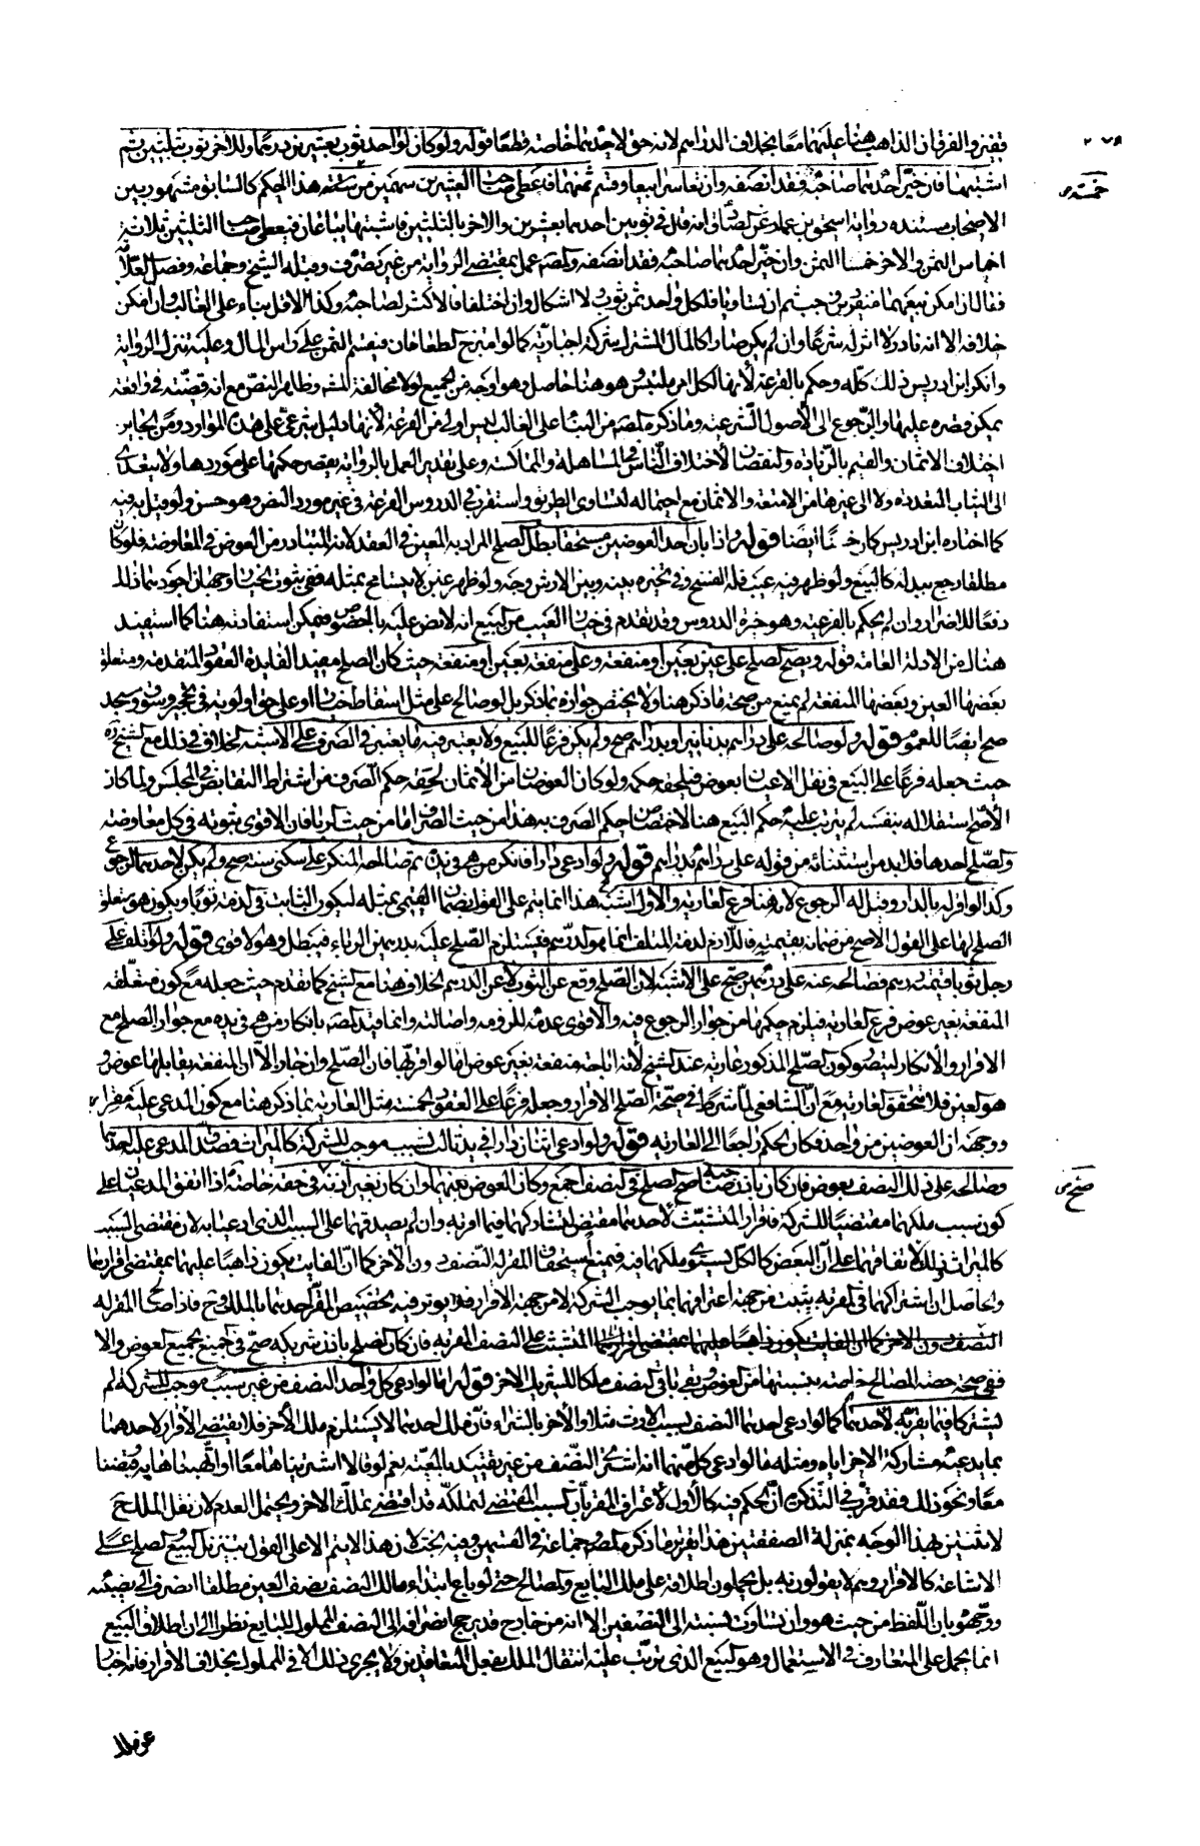 قفيز والفرق ان الذاهب هنا عليهما معا بخلاف الدراهم لانه حق لاحدهما خاصة قطعا قوله ولو كان لواحد ثوب بعشرين درهما وللاخر ثوب بثلثين ثم
اشتبها فان خير احدهما صاحبه فقد انصفه وان تعاسرا بيعا وقسم ثمنهما فاعطى صاحب العشرين سهمين من خمسة هذا الحكم كالسابق مشهور بين
خمسة
الاصحاب ومستنده رواية اسحق بن عمار عن الصادق انه قال في ثوبين احدهما بعشرين والاخر بالثلثين فاشتبها يباعان فيعطى صاحب الثلثين ثلاثة
اخماس الثمن والاخر خمسا الثمن وان خير احدهما صاحبه فقد انصفه والمصنف عمل بمقتضى الرواية من غير تصرف وقبله الشيخ وجماعة وفصل العلامة
فقال ان امكن بيعهما منفردين وجب ثم ان تساويا فلكل واحد ثمن ثوب ولا اشكال وان اختلفا فالاكثر لصاحبه وكذا الاقل بناء على الغالب وان امكن
خلافه الا انه نادر لا اثر له شرعا وان لم يمكن صارا كالمال المشترك شركة اجبارية كما لو امتزج الطعامان فيقسم الثمن على راس المال وعليه تنزل الرواية
وانكر ابن ادريس ذلك كله وحكم بالقرعة لانها لكل امر ملتبس وهو هنا حاصل وهو اوجه من الجميع لولا مخالفة المشهور وظاهر النص مع انه قضية في واقعة
يمكن قصره عليها والرجوع الى الاصول الشرعية وما ذكره المصنف من البناء على الغالب ليس اولى من القرعة لانها دليل شرعي على هذه الموارد ومن الجائز
اختلاف الاثمان والقيم بالزيادة والنقصان لاختلاف الناس في المساهلة والمماكسة وعلى تقدير العمل بالرواية يقصر حكمها على موردها ولا يتعدى
الى الثياب المتعددة ولا الى غيرها من الامتعة والاثمان مع احتماله لتساوي الطريق واستقرب في الدروس القرعة في غير مورد النص وهو حسن ولو قيل به فيه
كما اختاره ابن ادريس كان حسنا ايضا قوله واذا بان احد العوضين مستحقا بطل الصلح المراد به المعين في العقد لانه المتبادر من العوض في المعاوضة فلو كان
مطلقا رجع ببدله كالبيع ولو ظهر فيه عيب فله الفسخ وفي تخيره بينه وبين الارش وجه ولو ظهر غبن لا يتسامح بمثله ففي ثبوت الخيار وجهان اجودهما ذلك
دفعا للاضرار وان لم يحكم بالفرعية وهو خيرة الدروس وقد تقدم في خيار الغبن من البيع انه لا نص عليه بالخصوص فيمكن استفادته هنا كما استفيد
هناك من الادلة العامة قوله ويصح الصلح على عين بعين او منفعة وعلى منفعة بعين او منفعة حيث كان الصلح مفيدا لفائدة العقود المتقدمة ومتعلق
بعضها العين وبعضها المنفعة لم يمنع من صحته ما ذكر هنا ولا يختص جوازه بما ذكر بل لو صالح على مثل اسقاط خيار او على حق اولوية في تحجير وسوق ومسجد
صح ايضا للعموم قوله ولو صالحه على دراهم بدنانير او بدراهم صح ولم يكن فرعا للبيع ولا يعتبر فيه ما يعتبر في الصرف على الاشبه الخلاف في ذلك مع الشيخ ره
حيث جعله فرعا على البيع في نقل الاعيان بعوض فيلحقه حكمه ولو كان العوضان من الاثمان لحقه حكم الصرف من اشتراط التقابض في المجلس ولما كان
الاصح استقلاله بنفسه لم يترتب عليه حكم البيع هنا لاختصاص حكم الصرف به هذا من حيث الصرف اما من حيث الربا فان الاقوى ثبوته في كل معاوضة
والصلح احدها فلا بد من استثنائه من قوله على دراهم بدراهم قوله ولو ادعى دارا فانكر من هي في يده ثم صالحه المنكر على سكنى سنة صح ولم يكن لاحدهما الرجوع
وكذا لو اقر له بالدار وقيل له الرجوع لانه هنا فرع العارية والاول اشبه هذا انما يتم على القول بضمان القيمي بمثله ليكون الثابت في الذمة ثوبا ويكون هو متعلق
الصلح اما على القول الاصح من ضمانه بقيمته فاللازم لذمة المتلف انما هو الدرهم فيستلزم الصلح عليه بدرهمين الرباء فيبطل وهو الاقوى قوله ولو اتلف على
رجل ثوبا قيمته درهم فصالحه عنه على درهمين صح على الاشبه لان الصلح وقع عن الثوب لا عن الدرهم الخلاف هنا مع الشيخ كما تقدم حيث جعله مع كون متعلقه
المنفعة بغير عوض فرع العارية فيلزم حكمها من جواز الرجوع فيه والاقوى عدمه للزومه واصالته وانما قيد المصنف بانكار من هي في يده مع جواز الصلح مع
الاقرار والانكار ليتصور كون الصلح المذكور عارية عند الشيخ لانه اباحة منفعة بغير عوض اما لو اقر بها فان الصلح وان جاز الا ان المنفعة يقابلها عوض و
هو العين فلا يتحقق العارية مع ان الشافعي لما شرط في صحة الصلح الاقرار وجعله فرعا على العقود الخمسة مثل العارية بما ذكر هنا مع كون المدعى عليه مقرا
ووجهه ان العوضين من واحد فكان الحكم راجعا الى العارية قوله ولو ادعى اثنان دارا في يد ثالث بسبب موجب للشركة كالميراث فصدق المدعى عليه احدهما
وصالحه على ذلك النصف بعوض فان كان باذن صاحبه صح الصلح في النصف اجمع وكان العوض بينهما وان كان بغير اذنه صح في حقه خاصة اذا اتفق المدعيان على
صح
كون سبب ملكهما مقتضيا للشركة فاقرار المتشبث لاحدهما مقتض لتشاركهما فيما اقر به وان لم يصدقهما على السبب الذي ادعيا به لان مقتضى السبب
كالميراث ذلك لاتفاقهما على ان البعض كالكل يستحق ملكهما فيه فيمنع استحقاق المقر له النصف دون الاخر كما ان الفايت يكون ذاهبا عليهما بمقتضى اقرارهما
والحاصل ان اشتراكهما في المقر به يثبت من جهة اعترافهما بما يوجب الشركة لا من جهة الاقرار فلا يؤثر فيه تخصيص المقر احدهما بالملك وح فاذا صالح المقر له
المتشبث على النصف المقر به فان كان الصلح باذن شريكه صح في الجميع بجميع العوض والا
ففي صحة حصة المصالح خاصة بنسبتها من العوض وبقي باقي النصف ملكا للشريك الاخر قوله اما لو ادعى كل واحد النصف من غير سبب موجب للشركة لم
يشتركا فيما يقر به لاحدهما كما لو ادعى احدهما النصف بسبب الارث مثلا والاخر بالشراء فان ملك احدهما لا يستلزم ملك الاخر فلا يقتضي الاقرار لاحدهما
بما يدعيه مشاركة الاخر اياه ومثله ما لو ادعى كل منهما انه اشترى النصف من غير تقييد بالمعية نعم لو قالا اشتريناها معا او اتهبناها وقبضنا
معا ونحو ذلك فقد قرب في التذكرة ان الحكم فيه كالاول لاعتراف المقر بان السبب المقتضي لتملكه قد اقتضى تملك الاخر ويحتمل العدم لان نقل الملك
لاثنين بهذا الوجه بمنزلة الصفقتين هذا تقرير ما ذكره المصنف وجماعة في القسمين وفيه بحث لان هذا لا يتم الا على القول بتنزيل البيع والصلح على
الاشاعة كالاقرار وهم لا يقولون به بل يحملون اطلاقه على ملك البايع والمصالح حتى لو باع ابتداء مالك النصف نصف العين مطلقا انصرف الى نصيبه
ووجهوه بان اللفظ من حيث هو وان تساوت نسبته الى النصفين الا انه من خارج قد يرجح انصرافه الى النصف المملوك للبايع نظرا الى ان اطلاق البيع
انما يحمل على المتعارف في الاستعمال وهو البيع الذي يترتب عليه انتقال الملك بفعل المتعاقدين ولا يجري ذلك الا في المملوك بخلاف الاقرار فانه اخبار
عن ملك